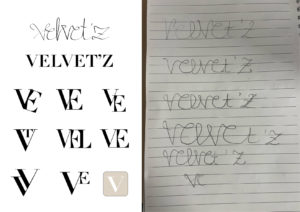 Velvet'Z
VELVET'Z
VE VE VE
VEL VE
VE
V
Velvet'Z
Velvet'Z
Velvet'Z
Velvet'Z
Velvet'Z
VE